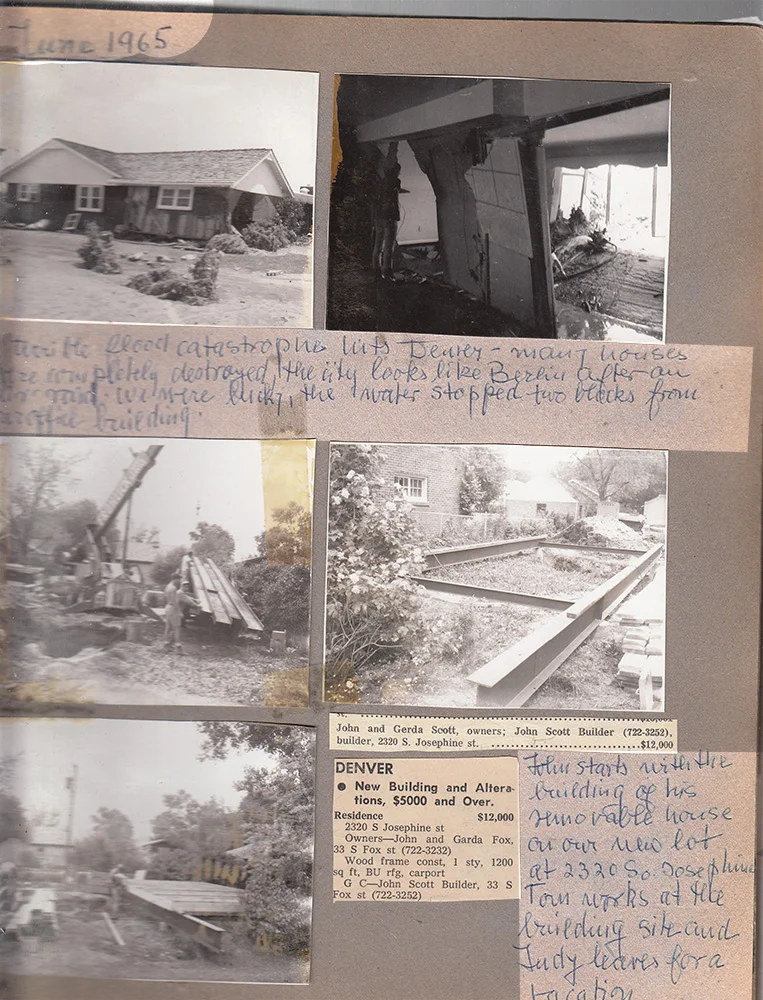 June 1965
flood catastrophe hits Denver - many houses
completely destroyed, the city looks like Berlin after an
we were lucky, the water stopped two blocks from
building.
John and Gerda Scott, owners; John Scott Builder (722-3252),
builder, 2320 S. Josephine st. ........................................$12,000
DENVER
● New Building and Altera-
tions, $5000 and Over.
Residence $12,000
2320 S Josephine st
Owners—John and Garda Fox,
33 S Fox st (722-3232)
Wood frame const, 1 sty, 1200
sq ft, BU rfg, carport
G C—John Scott Builder, 33 S
Fox st (722-3252)
John starts with the
building of his
removable house
on our new lot
at 2320 So. Josephine
Tom works at the
building site and
Judy leaves for a
vacation